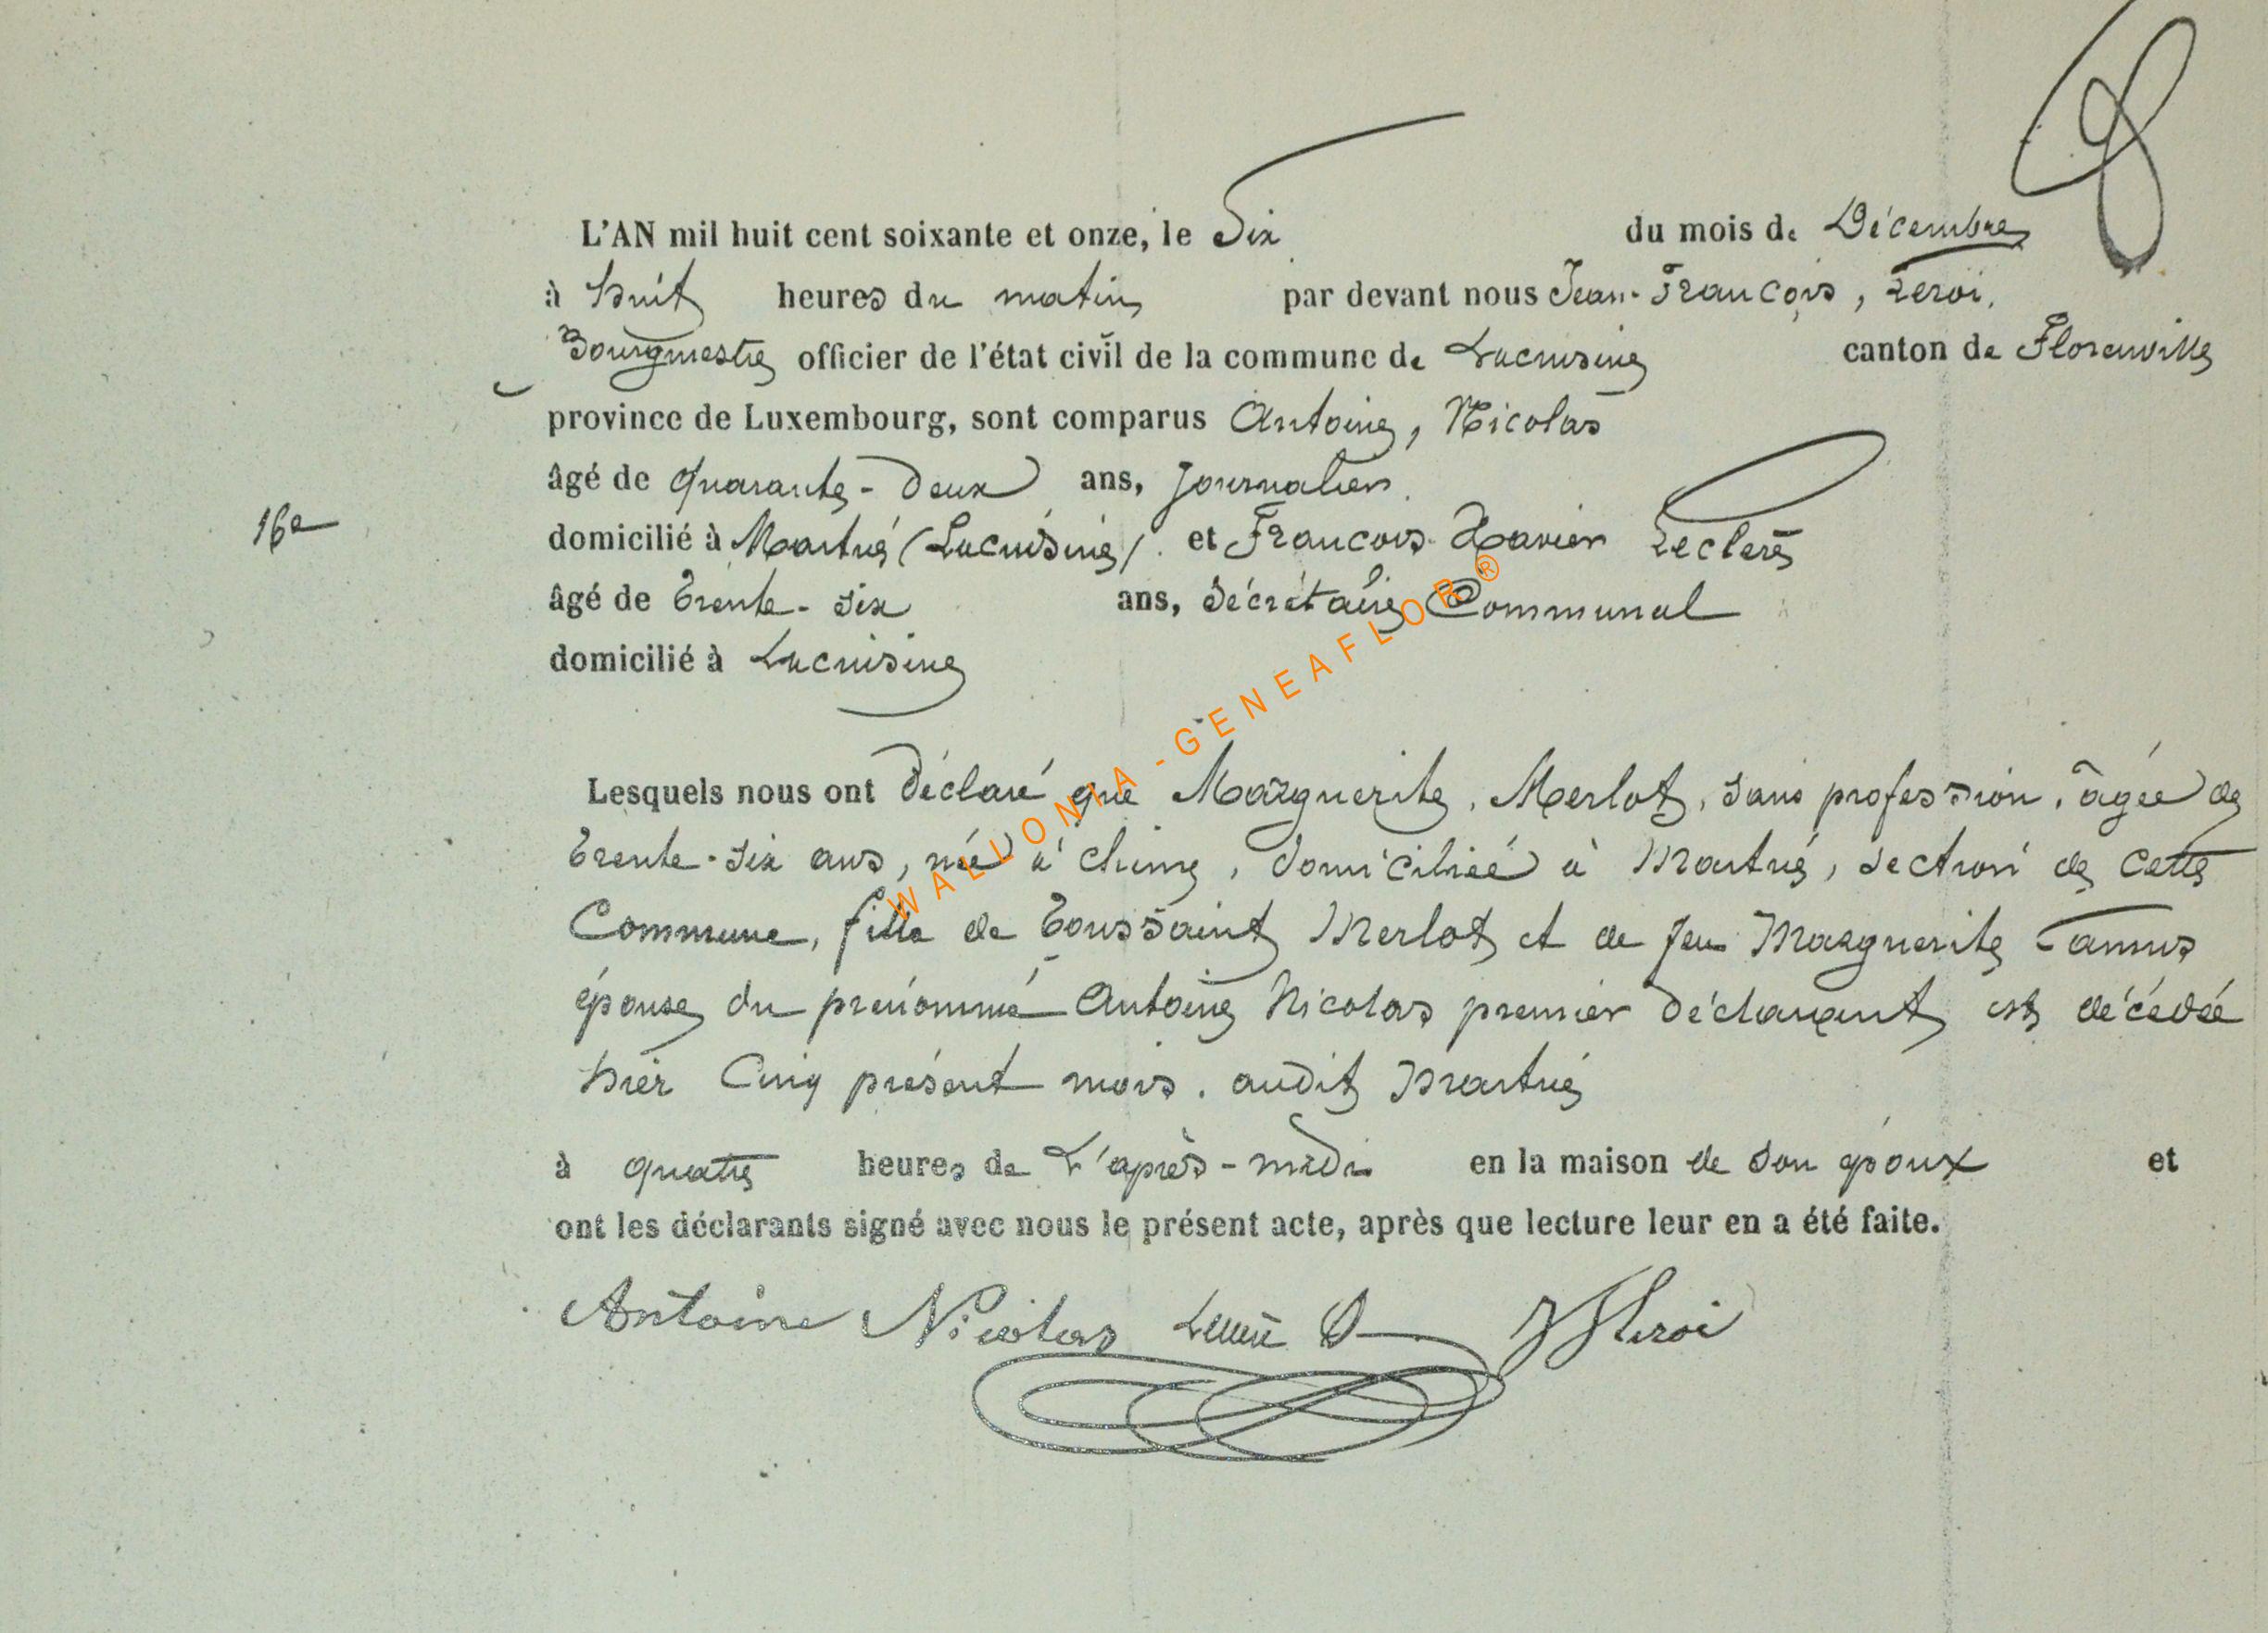 L'AN mil huit cent soixante et onze, le Six du mois de Décembre
à huit heures du matin par devant nous Jean-François, Leroi,
Bourgmestre officier de l'état civil de la commune de Lacuisine canton de Florenville
province de Luxembourg, sont comparus Antoine, Nicolas
âgé de quarante-deux ans, journalier.
16e
domicilié à Martué (Lacuisine). et François Xavier Leclere
âgé de Trente-six ans, Sécrétaire Communal
domicilié à Lacuisine
Lesquels nous ont déclaré que Marguerite, Merlot, sans profession, âgée de
Trente-six ans, née à Chiny, domiciliée à Martué, section de cette
Commune, fille de Toussaint Merlot et de feu Marguerite
épouse du prénommé Antoine Nicolas premier déclarant, est décédée
hier Cinq présent mois, audit Martué
à quatre heures de L'après-midi en la maison de son époux et
ont les déclarants signé avec nous le présent acte, après que lecture leur en a été faite.
Antoine Nicolas JFLeroi
WALLONIA-GENEAFLOR®